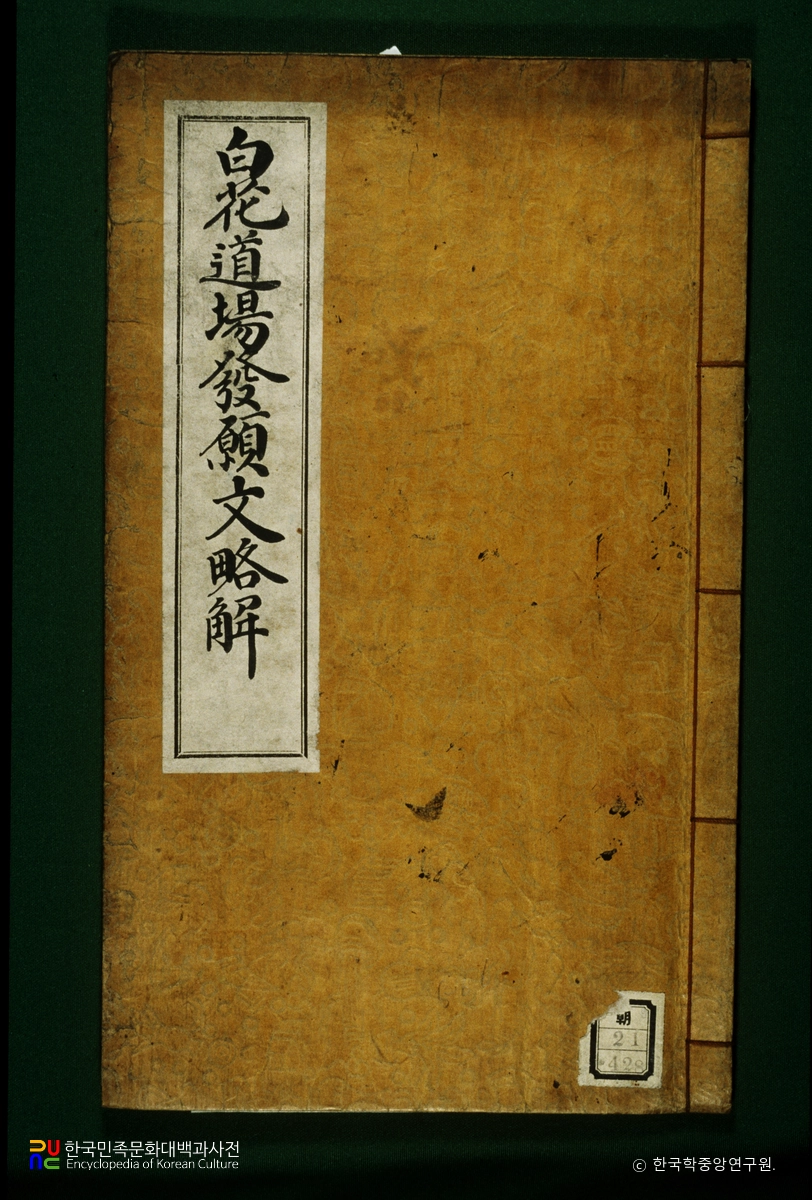 白花道場發願文略解
朝
21
428
한국민족문화대백과사전
Encyclopedia of Korean Culture
© 한국학중앙연구원.